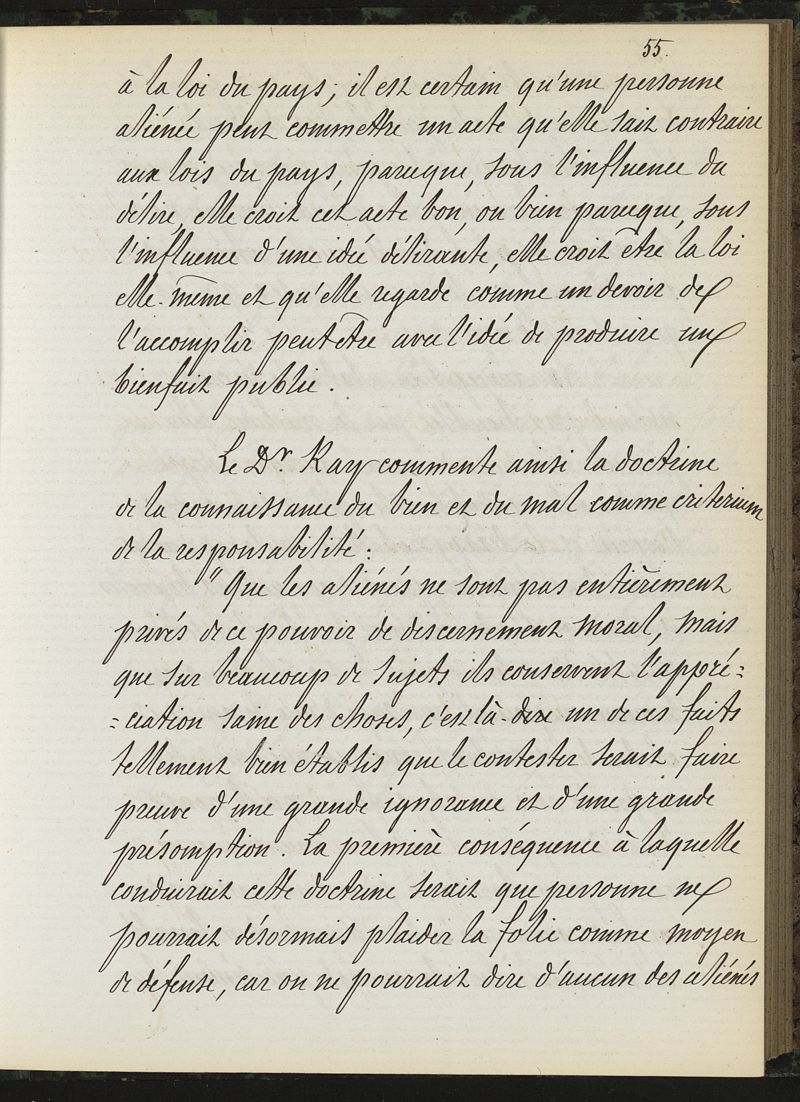 55.
à la loi du pays; il est certain qu'une personne
aliénée peut commettre un acte qu'elle sait contraire
aux lois du pays, parceque, sous l'influence du
délire, elle croit cet acte bon, ou bien parceque, sous
l'influence d'une idée délirante, elle croit être la loi
elle-même et qu'elle regarde comme un devoir de
l'accomplir peut être avec l'idée de produire un
bienfait public.
Le Dr. Ray commente ainsi la doctrine
de la connaissance du bien et du mal comme criterium
de la responsabilité:
" Que les aliénés ne sont pas entièrement
privés de ce pouvoir de discernement moral, mais
que sur beaucoup de sujets ils conservent l'appré=
=ciation saine des choses, c'est là-dire un de ces faits
tellement bien établis que le contester serait faire
preuve d'une grande ignorance et d'une grande
présomption. La première conséquence à laquelle
conduirait cette doctrine serait que personne ne
pourrait désormais plaider la folie comme moyen
de défense, car on ne pourrait dire d'aucun des aliénés